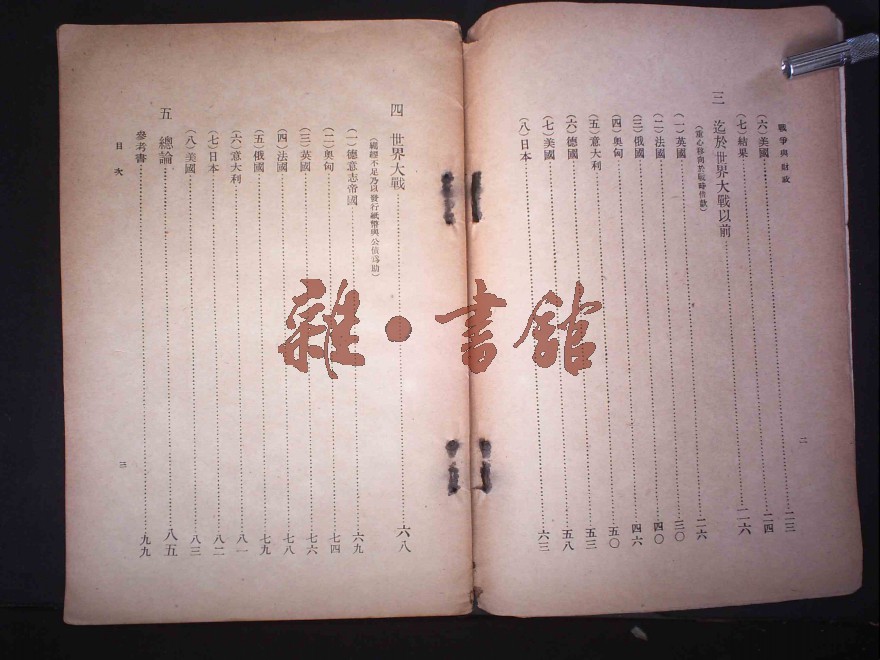 戰爭與財政
二
(六)美國……二三
(七)結果……二四
三 迄於世界大戰以前……二六
(重心移向於戰時借款)
(一)英國……二六
(二)法國……三〇
(三)俄國……四〇
(四)奧匈……四六
(五)意大利……五〇
(六)德國……五三
(七)美國……五八
(八)日本……六三
四 世界大戰……六八
不足乃以發行紙幣與公債為助)
(一)德意志帝國……六九
(二)奧匈……七四
(三)英國……七六
(四)法國……七八
(五)俄國……七九
(六)意大利……八一
(七)日本……八二
(八)美國……八三
五 總論……八五
參考書……九九
目次
三
雜•書館